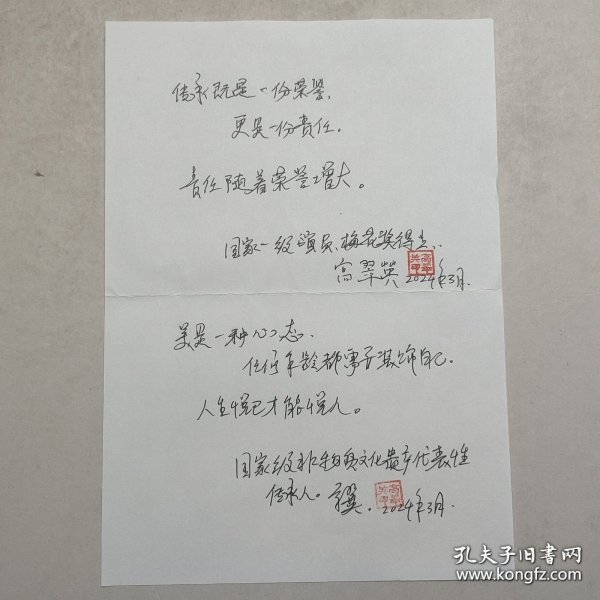 传承既是一份荣誉、
更是一份责任。
责任随着荣誉增大。
国家一级演员、梅花奖得主、
高翠英 2024年3月.
美是一种心态、
任何年龄都需要装饰自己。
人生悦己才能悦人。
国家级非物质文化遗产代表性
传承人。 2024年3月.
孔夫子旧书网
www.kongfz.com